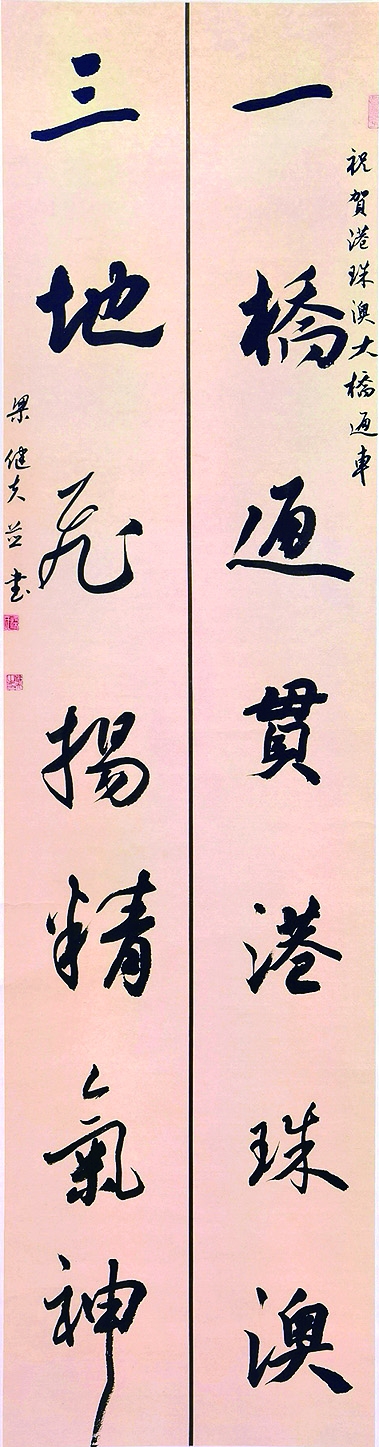 祝賀港珠澳大橋通車
一橋通貫港珠澳
三地飛揚精氣神
梁健夫並書